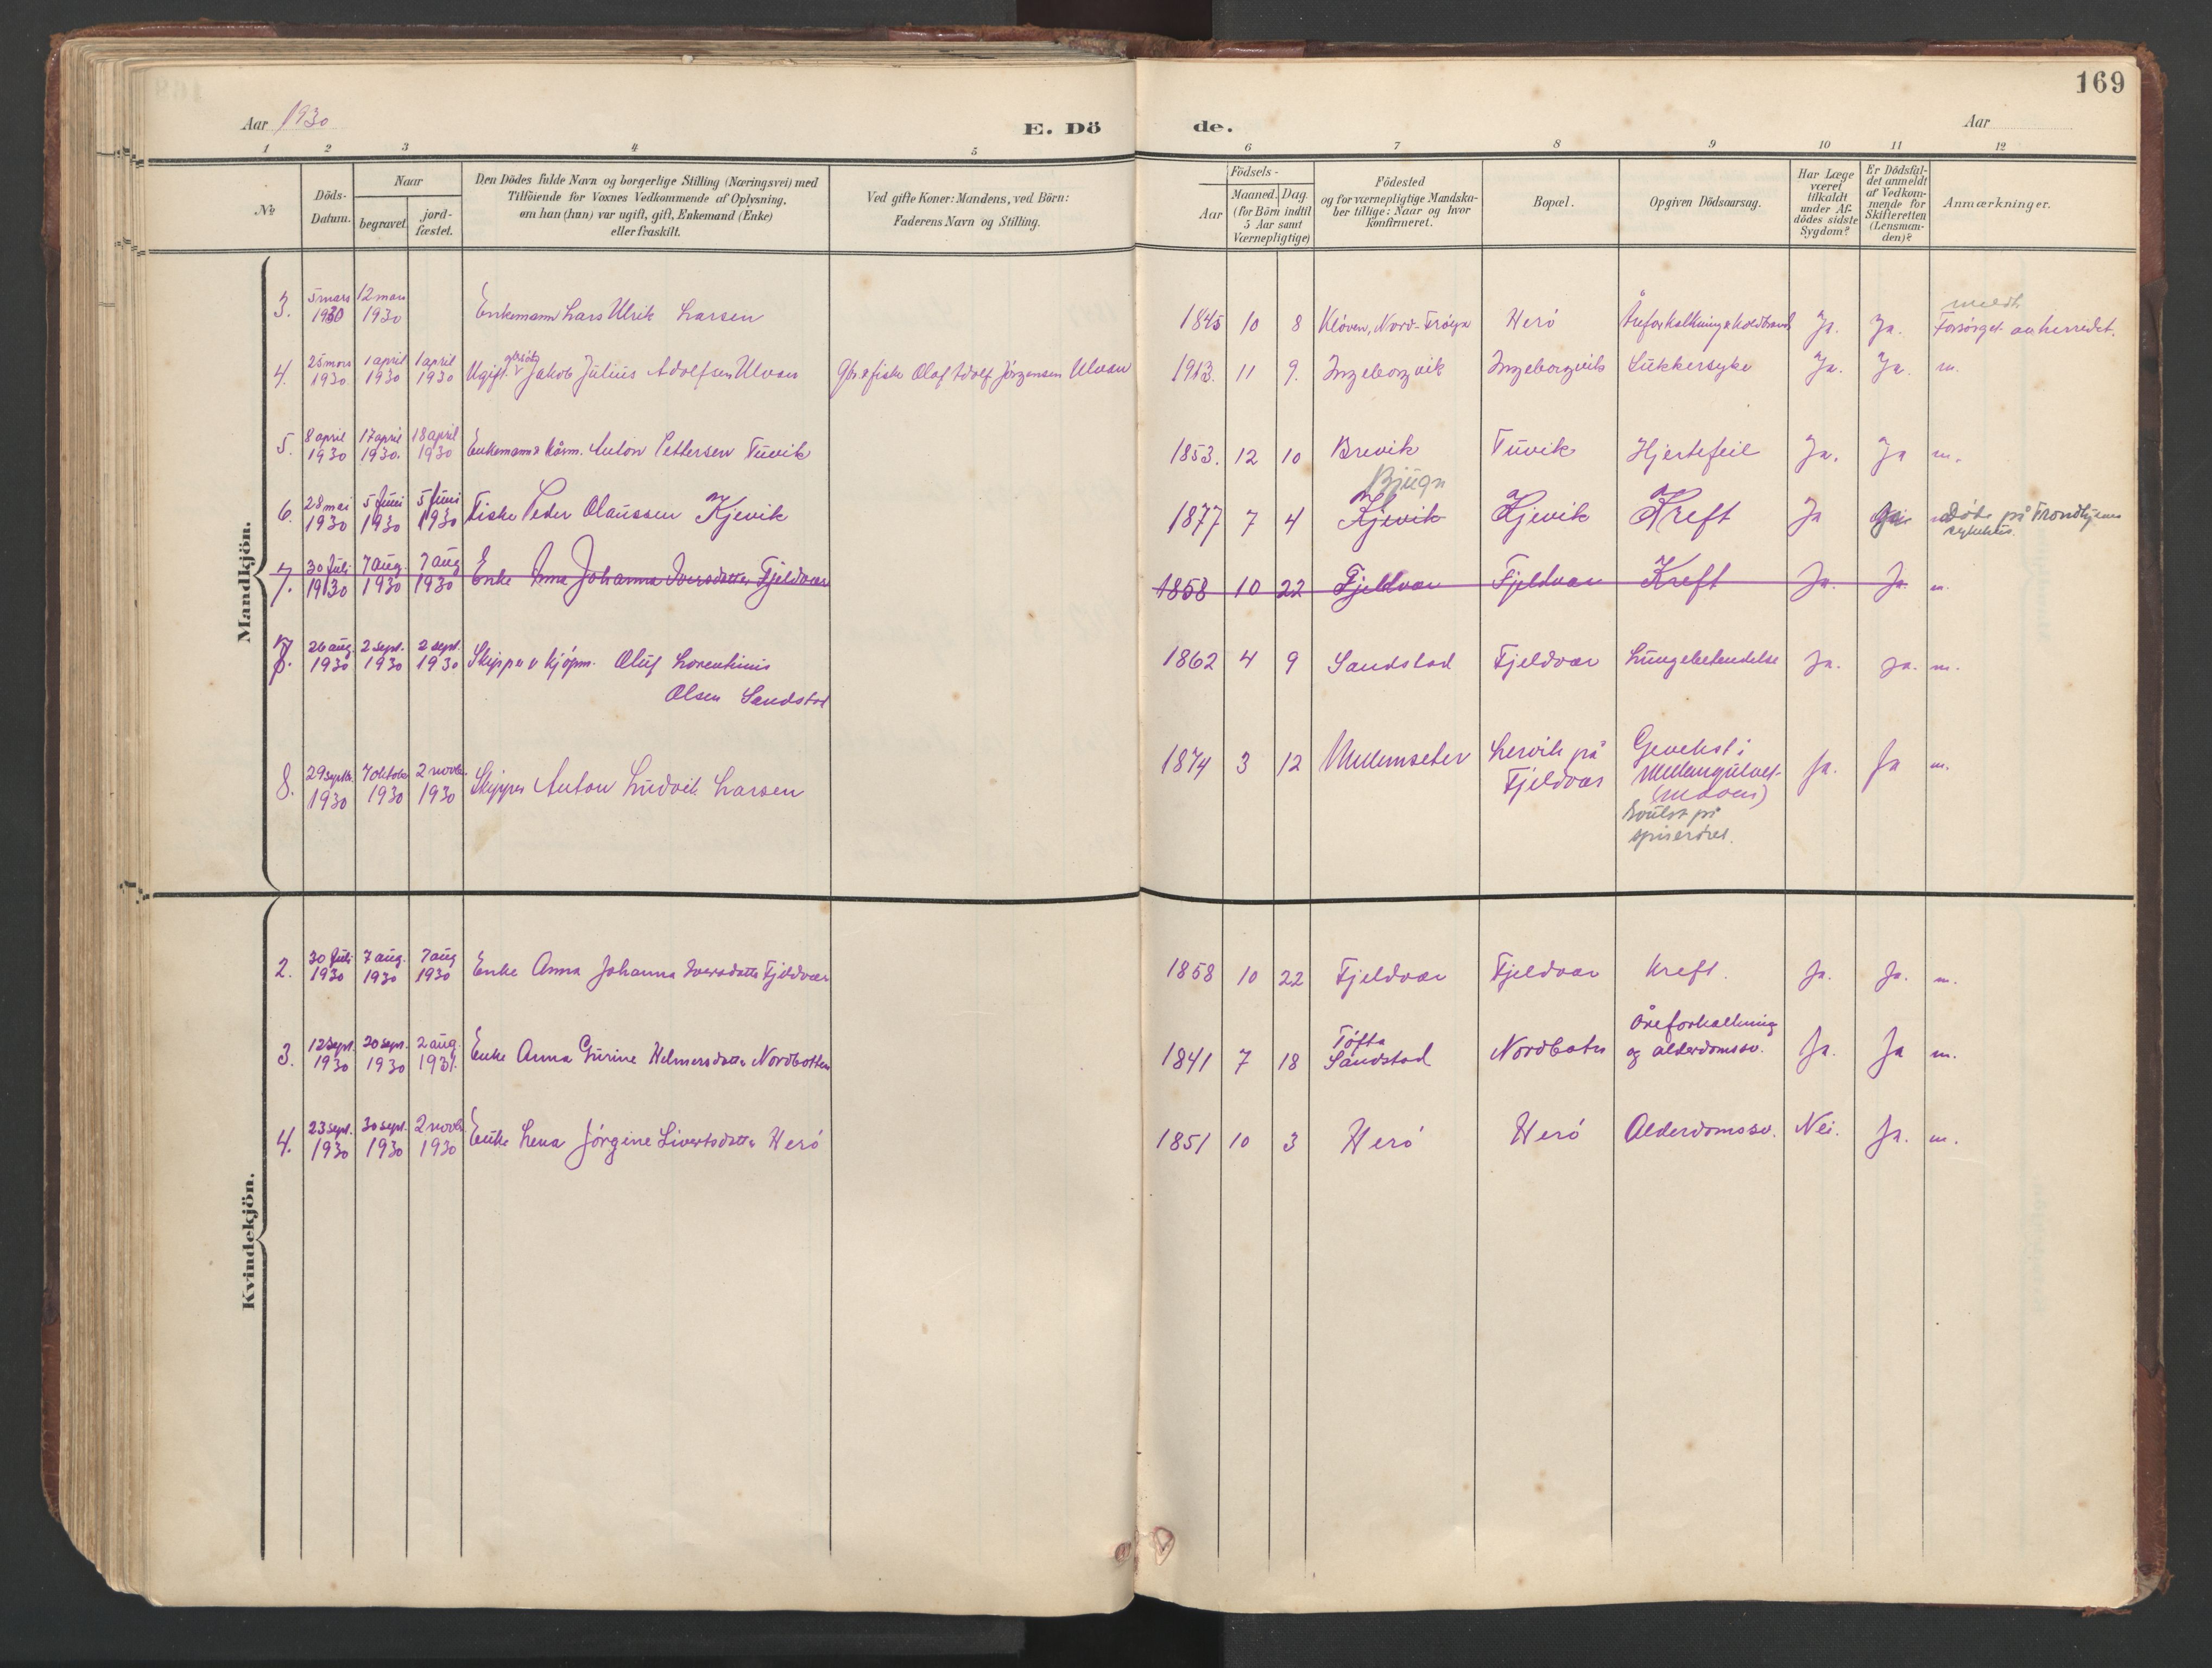 169
Aar 1930
E. Dö
de.
Aar
1 2 3 4 5 6 7 8 9 10 11 12
№
Döds-
Datum.
Naar
begravet.
jord-
fæstet.
Den Dödes fulde Navn og borgerlige Stilling (Næringsvei) med
Tilföiende for Voxnes Vedkommende af Oplysning,
om han (hun) var ugift, gift, Enkemand (Enke)
eller fraskilt.
Ved gifte Koner: Mandens, ved Börn:
Faderens Navn og Stilling.
Födsels-
Aar
Maaned. Dag.
(for Börn indtil
5 Aar samt
Værnepligtige)
Födested
og for værnepligtige Mandska-
ber tillige: Naar og hvor
konfirmeret.
Bopæl.
Opgiven Dödsaarsag.
Har Læge
været
tilkaldt
under Af-
dödes sidste
Sygdom?
Er Dödsfal-
det anmeldt
af Vedkom-
mende for
Skifteretten
(Lensman-
den)?
Anmærkninger.
Mandkjön.
3. 5 mars 1930 12 mars 1930 Enkemann Lars Ulrik Larsen 1845 10 8 Kløven, Nord-Frøya Herø Åreforkalkning & koldbrand Ja. Ja. meldt Forsørget av herredet.
4. 25 mars 1930 1 april 1930 1 april 1930 Ugift Jakob Julius Adolfsen Ulvan Gbr & fisk Olaf Adolf Jørgensen Ulvan 1913. 11 9. Ingeborgvik Ingeborgvik Sukkersyke Ja. Ja. m.
5. 8 april 1930 17 april 1930. 18 april 1930 Enkemann & kårm. Anton Pettersen Tuvik 1853. 12 10 Brevik Tuvik Hjertefeil Ja. Ja m.
6. 28 mai 1930 5 juni 1930 5 juni 1930 Fisker Peder Olaussen Kjevik 1877 7 4 Bjugn Kjevik Kjevik Kreft Ja Døde på Trondhjems sykehus.
7. 30 juli 1930 7 aug. 1930 7 aug 1930 Enke Anna Johanna Iversdatter Fjeldvær 1858 10 22 Fjeldvær Fjeldvær Kreft Ja. Ja. m.
7. 26 aug. 1930 2 sept. 1930 2 sept. 1930 Skipper & kjøpm. Oluf Lorentinus
Olsen Sandstad 1862 4 9 Sandstad Fjeldvær Lungebetendelse Ja. Ja. m.
8. 29 septbr. 1930 7 oktober 1930 2 novbr. 1930 Skipper Anton Ludvik Larsen 1874 3 12 Mellemseter Lervik på Fjeldvær Gevekst i Mellemgulvet (maven) Svulst på spiserøret. Ja. Ja m.
Kvindekjön.
2. 30 juli 1930 7 aug. 1930 7 aug 1930 Enke Anna Johanna Iversdatter Fjeldvær 1858 10 22 Fjeldvær Fjeldvær Kreft. Ja. Ja. m.
3. 12 sept. 1930 20 sept. 1930 2 aug. 1931. Enke Anna Gurine Helmersdatter Nordbotten 1841 7 18 Tøfta Sandstad Nordbotn Åreforkalkning og alderdomssv. Ja. Ja m.
4. 23 sept. 1930 30 sept. 1930 2 novbr. 1930 Enke Lena Jørgine Sivertsdatter Herø 1851 10 3 Herø Herø Alderdomssv. Nei. Ja. m.